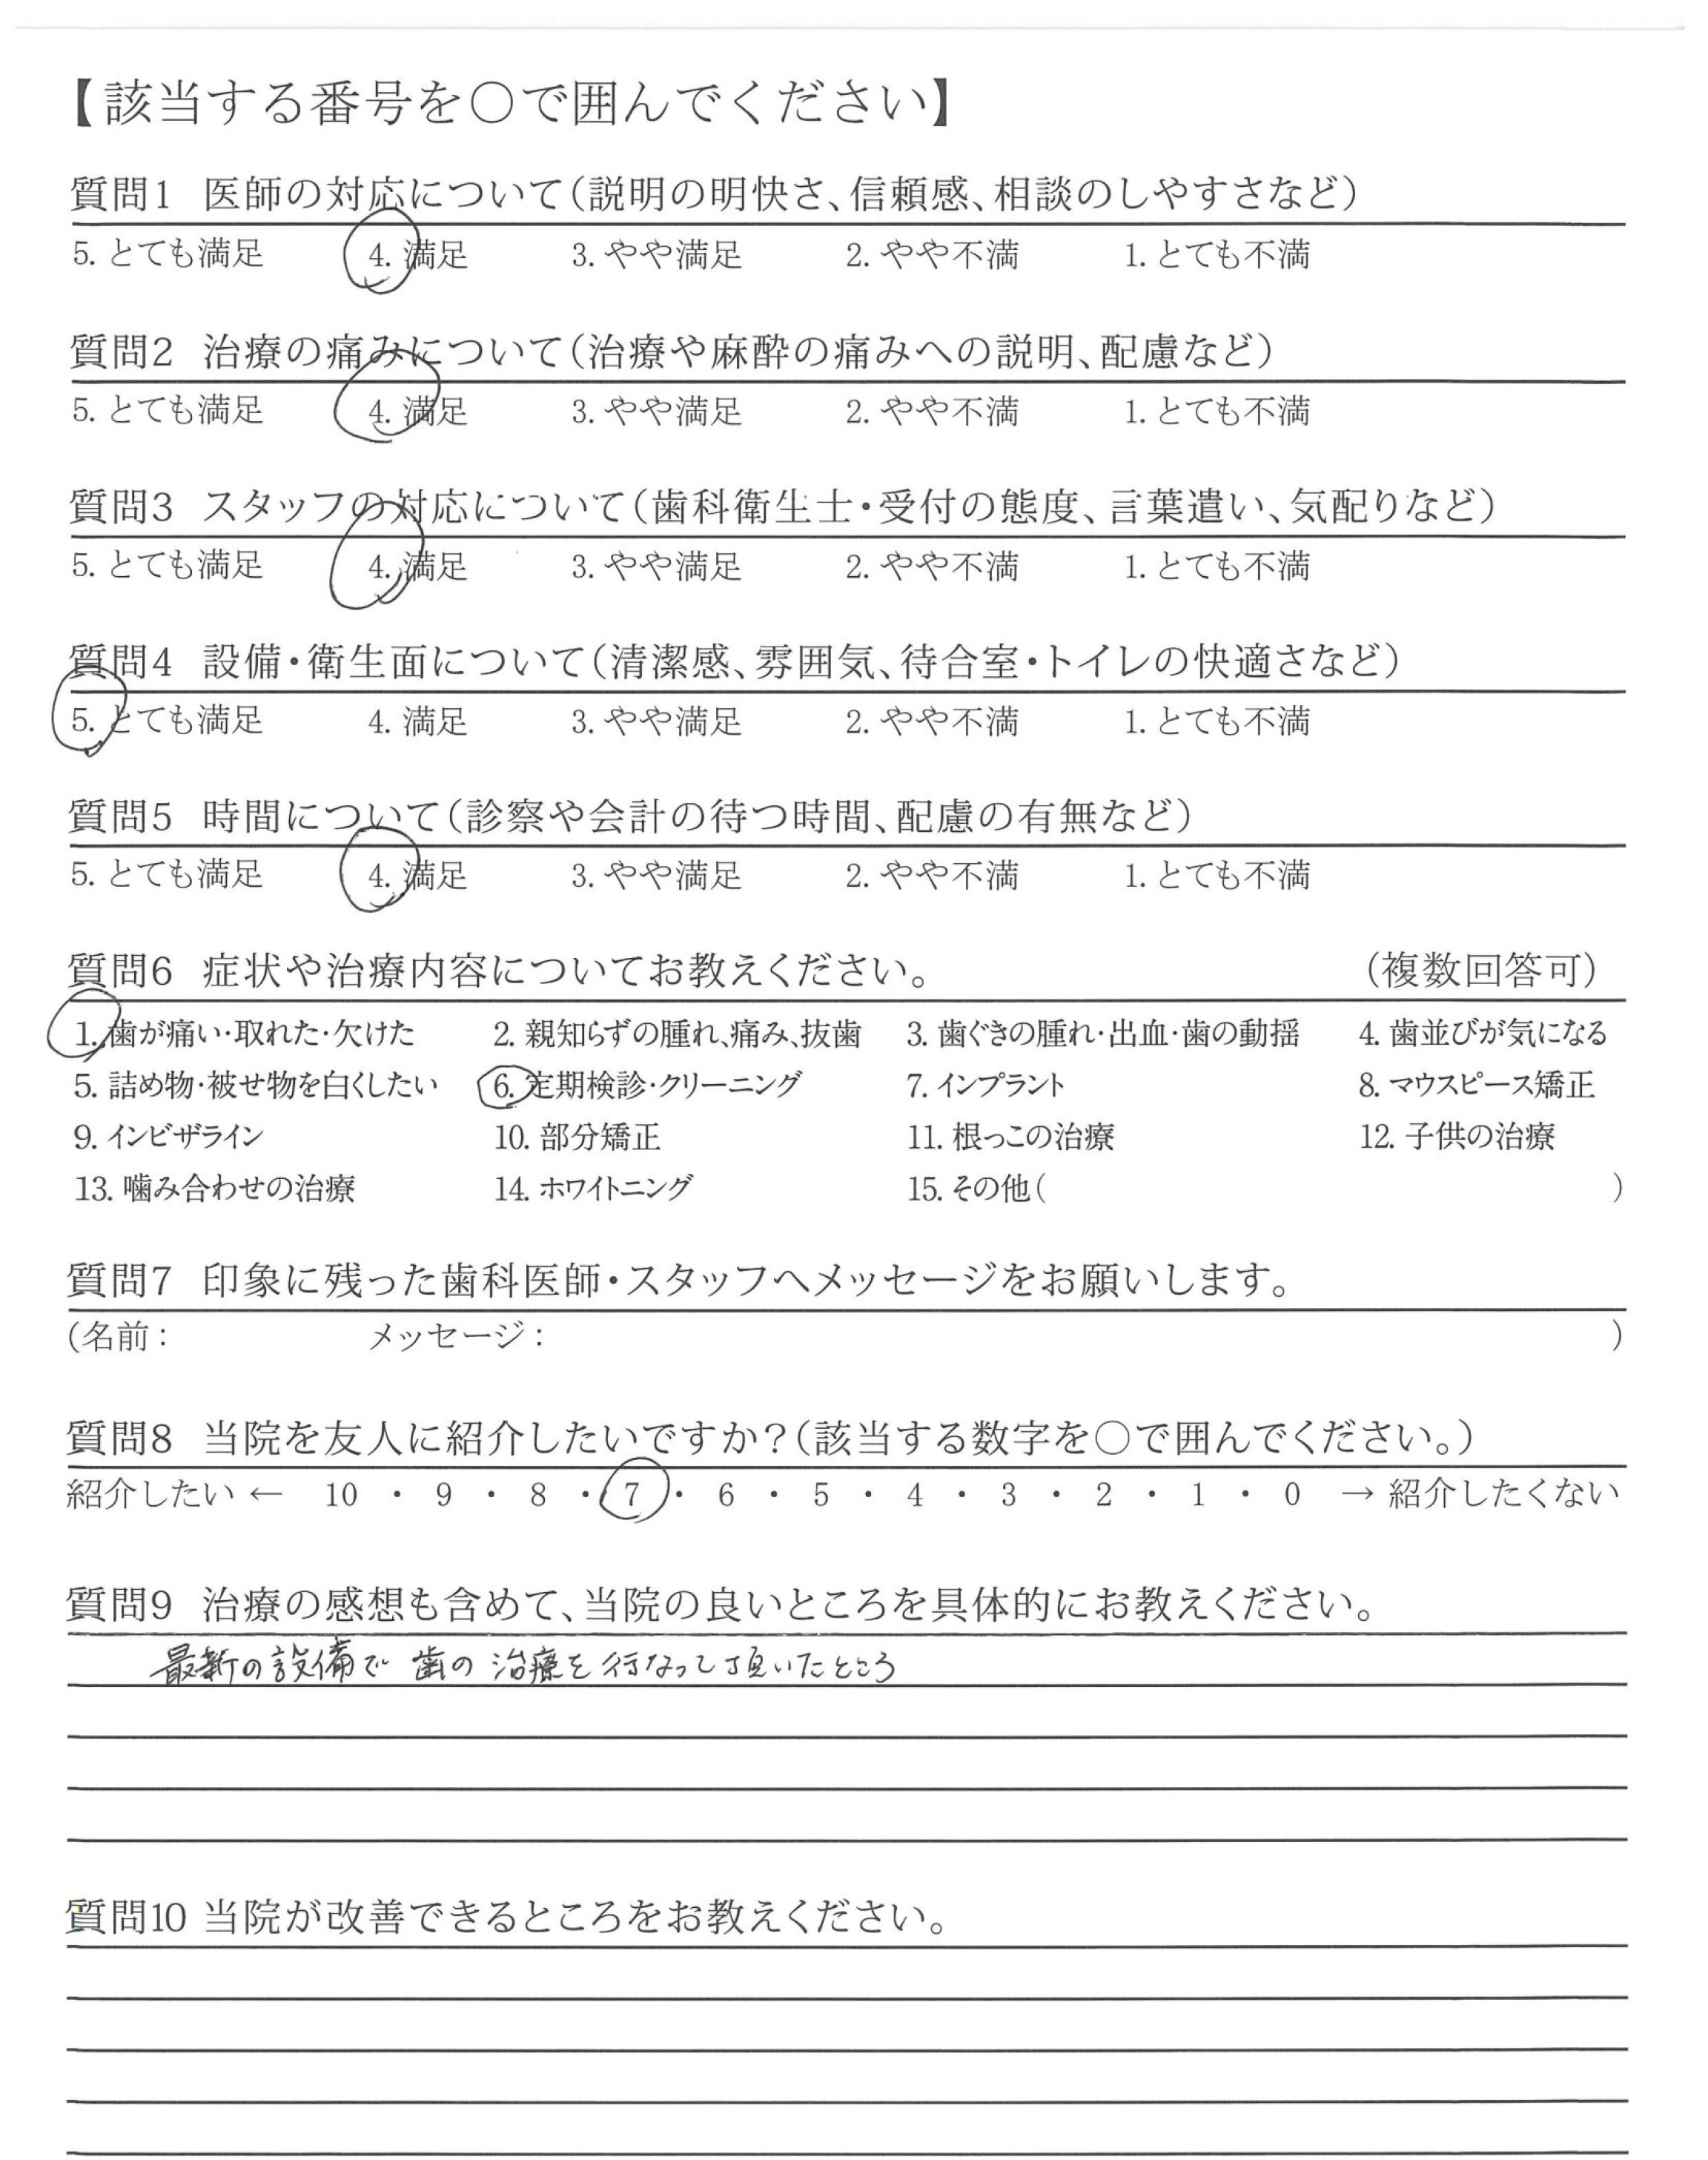 【該当する番号を○で囲んでください】
質問1 医師の対応について(説明の明快さ、信頼感、相談のしやすさなど)
5. とても満足 4. 満足 3. やや満足 2. やや不満 1. とても不満
質問2 治療の痛みについて(治療や麻酔の痛みへの説明、配慮など)
5. とても満足 4. 満足 3. やや満足 2. やや不満 1. とても不満
質問3 スタッフの対応について(歯科衛生士・受付の態度、言葉遣い、気配りなど)
5. とても満足 4. 満足 3. やや満足 2. やや不満 1. とても不満
質問4 設備・衛生面について(清潔感、雰囲気、待合室・トイレの快適さなど)
5. とても満足 4. 満足 3. やや満足 2. やや不満 1. とても不満
質問5 時間について(診察や会計の待つ時間、配慮の有無など)
5. とても満足 4. 満足 3. やや満足 2. やや不満 1. とても不満
質問6 症状や治療内容についてお教えください。 (複数回答可)
1. 歯が痛い・取れた・欠けた 2. 親知らずの腫れ、痛み、抜歯 3. 歯ぐきの腫れ・出血・歯の動揺 4. 歯並びが気になる
5. 詰め物・被せ物を白くしたい 6. 定期検診・クリーニング 7. インプラント 8. マウスピース矯正
9. インビザライン 10. 部分矯正 11. 根っこの治療 12. 子供の治療
13. 噛み合わせの治療 14. ホワイトニング 15. その他( )
質問7 印象に残った歯科医師・スタッフへメッセージをお願いします。
(名前: メッセージ: )
質問8 当院を友人に紹介したいですか?(該当する数字を○で囲んでください。)
紹介したい ← 10 ・ 9 ・ 8 ・ 7 ・ 6 ・ 5 ・ 4 ・ 3 ・ 2 ・ 1 ・ 0 → 紹介したくない
質問9 治療の感想も含めて、当院の良いところを具体的にお教えください。
最新の設備で 歯の 治療を行なって頂いたところ
質問10 当院が改善できるところをお教えください。